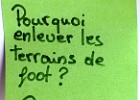 Pourquoi
enlever les
terrains de
foot ?